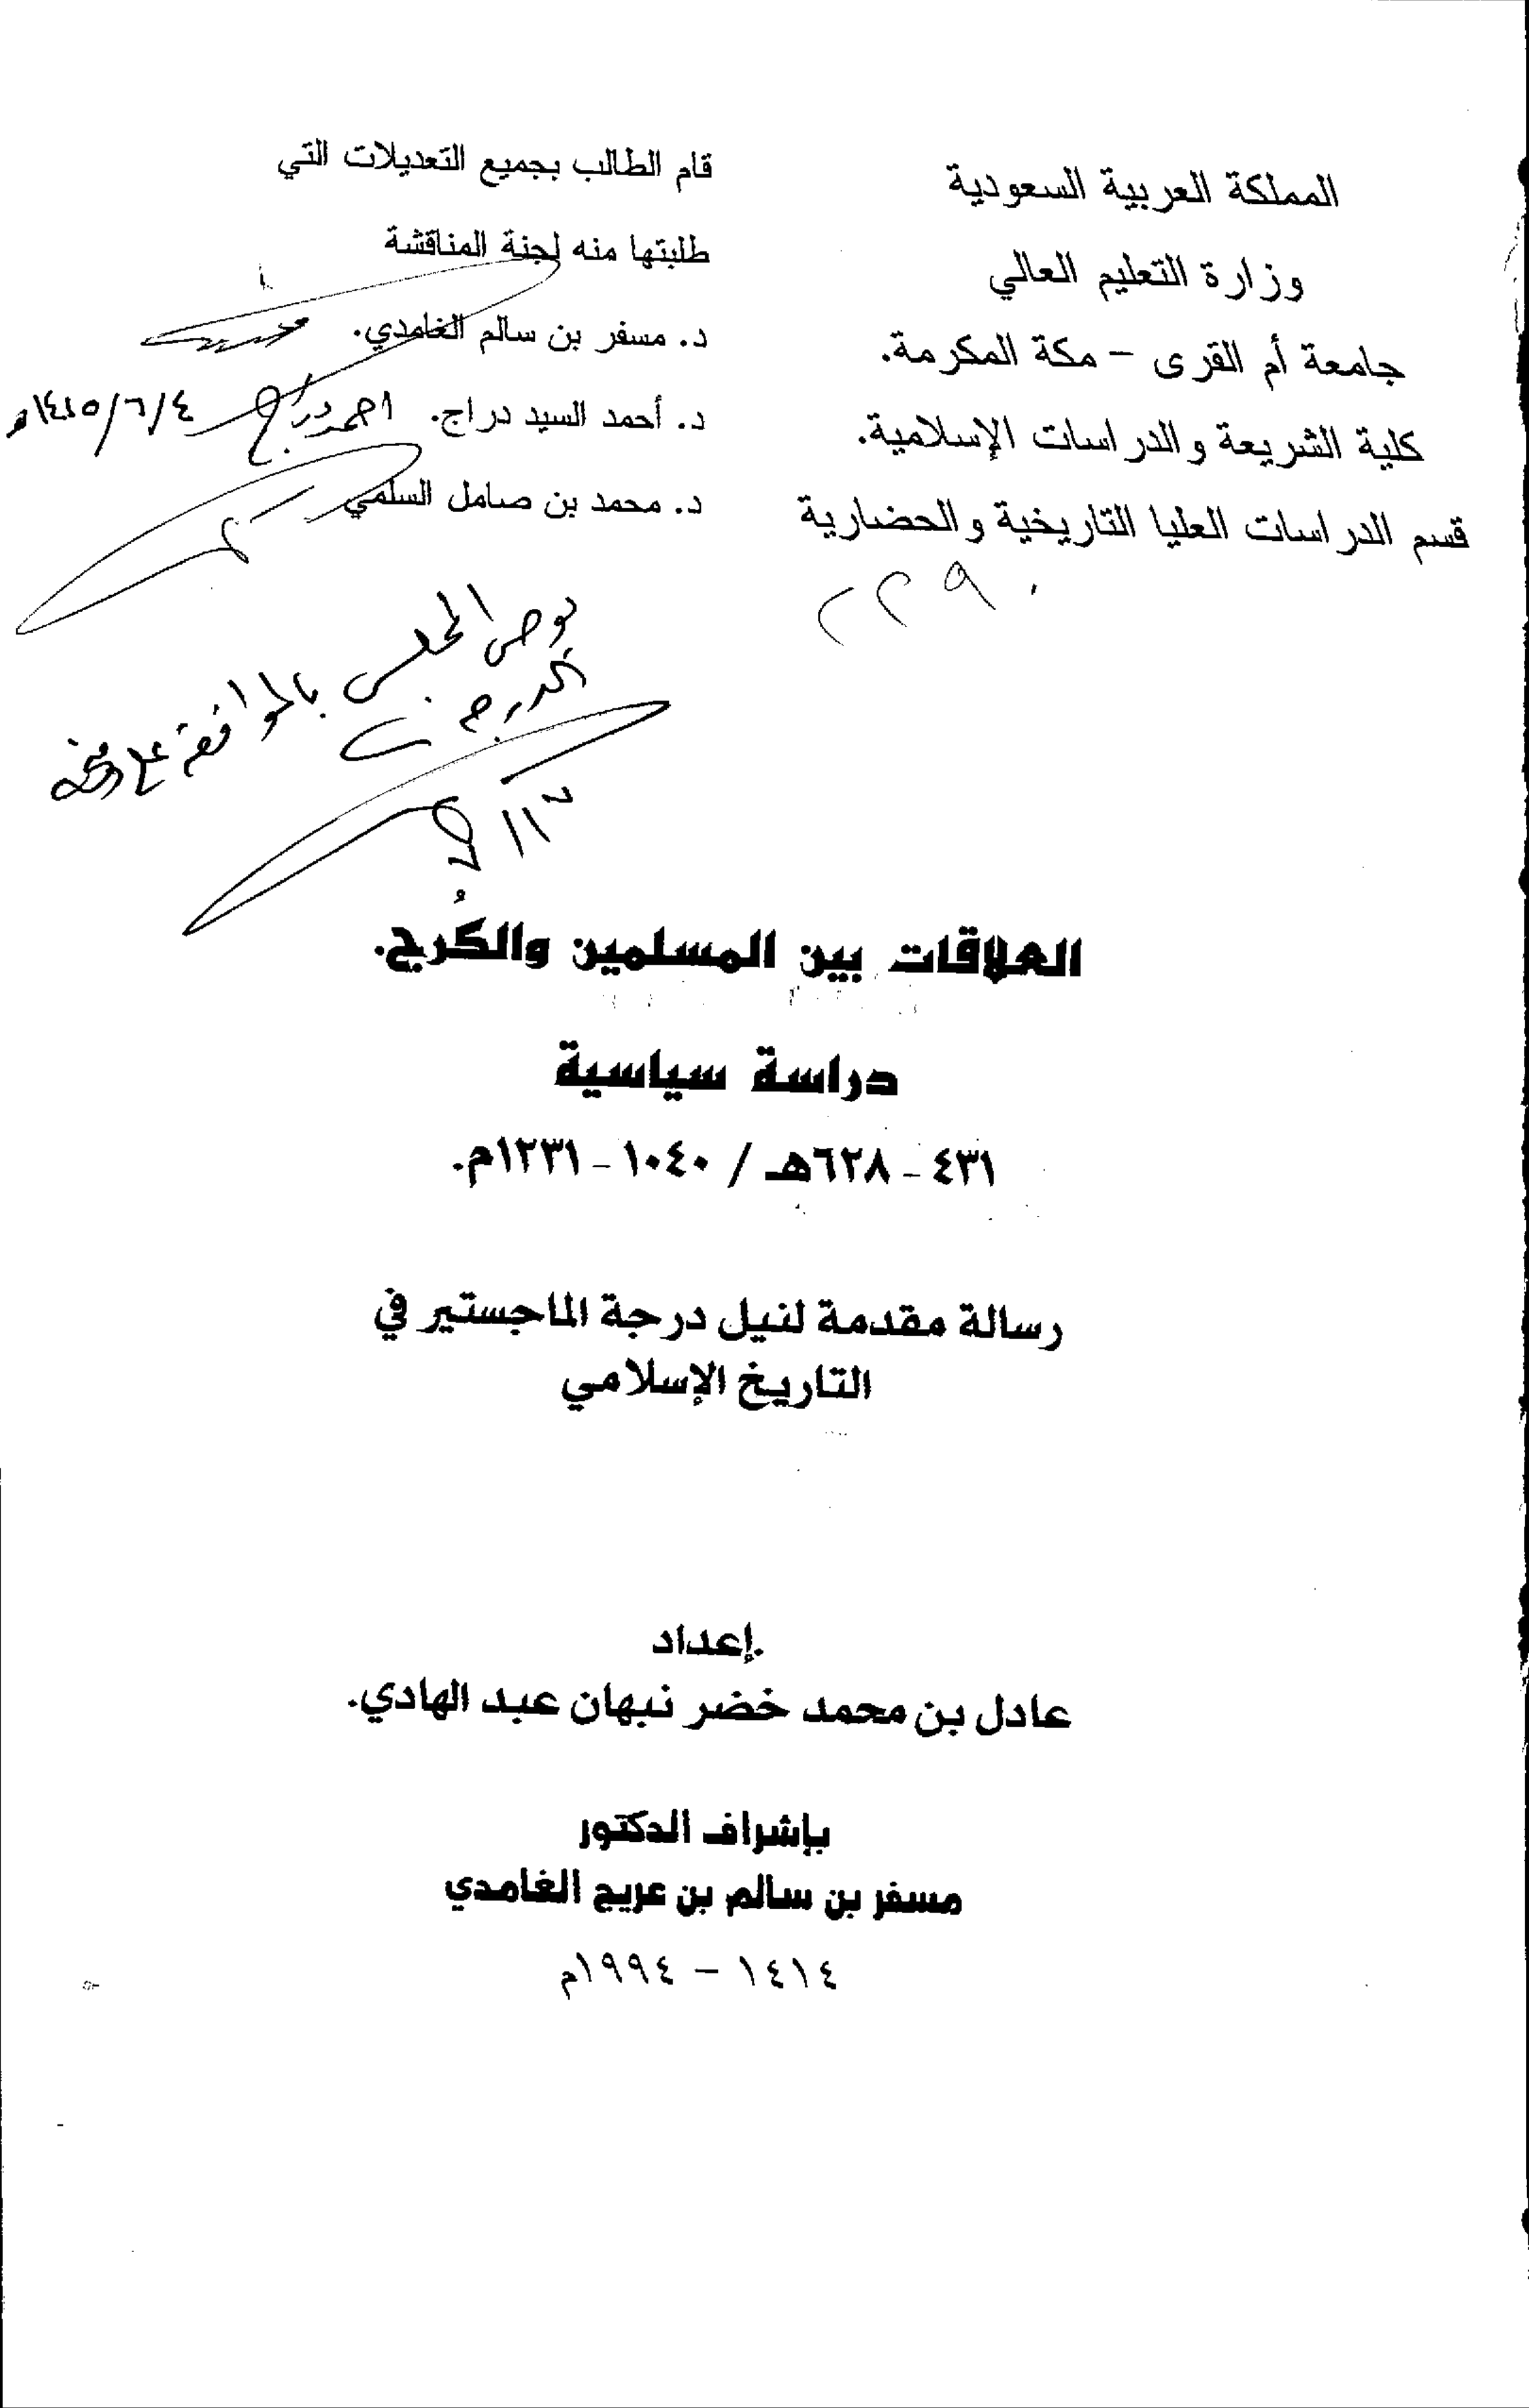 المملكة العربية السعودية
وزارة التعليم العالي
جامعة أم القرى – مكة المكرمة.
كلية الشريعة والدراسات الإسلامية.
قسم الدراسات العليا التاريخية والحضارية
قام الطالب بجميع التعديلات التي
طلبتها منه لجنة المناقشة
د. مسفر بن سالم الغامدي.
د. أحمد السيد دراج. احمد دراج ١٤١٥/٦/٤هـ
د. محمد بن صامل السلمي
يوصي المجلس بالموافقة على
العلاقات بين المسلمين والكُرج.
دراسة سياسية
٤٣١ - ٦٢٨هـ / ١٠٤٠ - ١٢٣١م.
رسالة مقدمة لنيل درجة الماجستير في
التاريخ الإسلامي
إعداد
عادل بن محمد خضر نبهان عبد الهادي.
بإشراف الدكتور
مسفر بن سالم بن عريج الغامدي
١٤١٤ – ١٩٩٤م